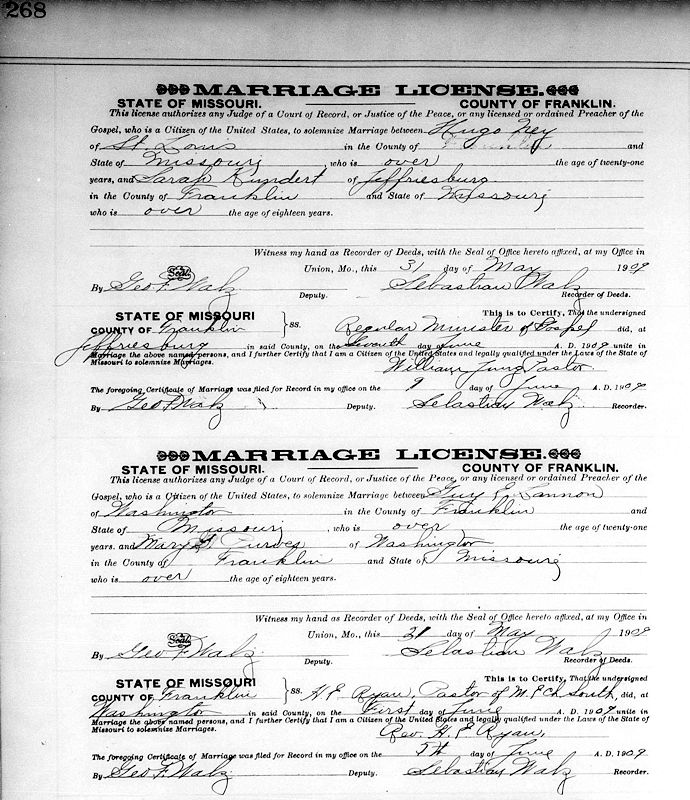 268
MARRIAGE LICENSE.
STATE OF MISSOURI. COUNTY OF FRANKLIN.
This license authorizes any Judge of a Court of Record, or Justice of the Peace, or any licensed or ordained Preacher of the
Gospel, who is a Citizen of the United States, to solemnize Marriage between Hugo Ney
of St Louis in the County of and
State of Missouri, who is over the age of twenty-one
years, and Sarah Kundert of Jeffriesburg
in the County of Franklin and State of Missouri
who is over the age of eighteen years.
Witness my hand as Recorder of Deeds, with the Seal of Office hereto affixed, at my Office in
Seal Union, Mo., this 31 day of May 1909
By Geo F. Walz Deputy. Sebastian Walz Recorder of Deeds.
STATE OF MISSOURI This is to Certify, That the undersigned
COUNTY OF Franklin ss. Regular Minister of Gospel did, at
Jeffriesburg in said County, on the Seventh day of June A. D. 1909 unite in
Marriage the above named persons, and I further Certify that I am a Citizen of the United States and legally qualified under the Laws of the State of
Missouri to solemnize Marriages.
William Jung Pastor
The foregoing Certificate of Marriage was filed for Record in my office on the 9 day of June A. D. 1909
By Geo F Walz Deputy. Sebastian Walz Recorder.
MARRIAGE LICENSE.
STATE OF MISSOURI. COUNTY OF FRANKLIN.
This license authorizes any Judge of a Court of Record, or Justice of the Peace, or any licensed or ordained Preacher of the
Gospel, who is a Citizen of the United States, to solemnize Marriage between Guy E.
of Washington in the County of Franklin and
State of Missouri, who is over the age of twenty-one
years, and Mary of Washington
in the County of Franklin and State of Missouri
who is over the age of eighteen years.
Witness my hand as Recorder of Deeds, with the Seal of Office hereto affixed, at my Office in
Seal Union, Mo., this 31 day of May 1909
By Geo F Walz Deputy. Sebastian Walz Recorder of Deeds.
STATE OF MISSOURI This is to Certify, That the undersigned
COUNTY OF Franklin ss. H E Ryan, Pastor of M. E Ch South, did, at
Washington in said County, on the First day of June A. D. 1909 unite in
Marriage the above named persons, and I further Certify that I am a Citizen of the United States and legally qualified under the Laws of the State of
Missouri to solemnize Marriages.
Rev. H. E Ryan,
The foregoing Certificate of Marriage was filed for Record in my office on the 5th day of June A. D. 1909
By Geo F Walz Deputy. Sebastian Walz Recorder.